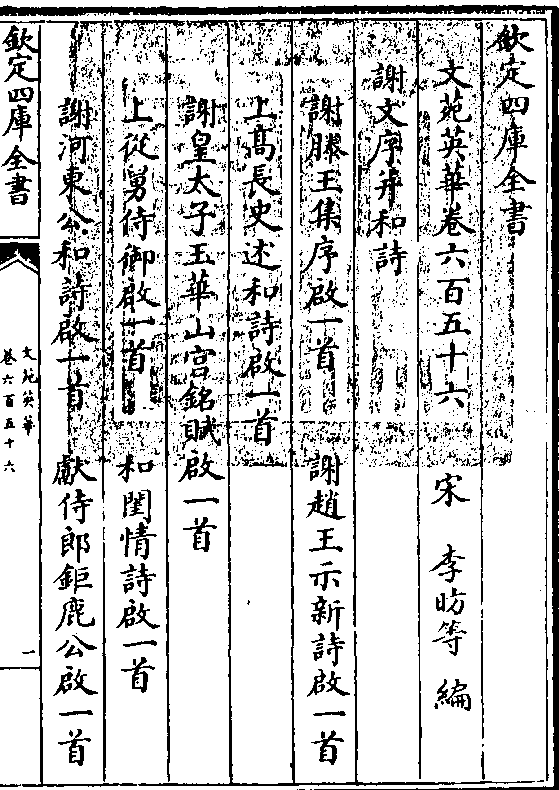 欽定四庫全書
文苑英華卷六百五十六　宋　李昉等　編
謝文序并和詩
謝滕王集序啟一首　謝趙王示新詩啟一首
上髙長史述和詩啟一首
謝皇太子玉華山宫銘賦啟一首
上從舅侍御啟一首　和閨情詩啟一首
謝河東公和詩啟一首　獻侍郎鉅鹿公啟一首
欽定四庫全書
文苑英華
卷六百五十六
一